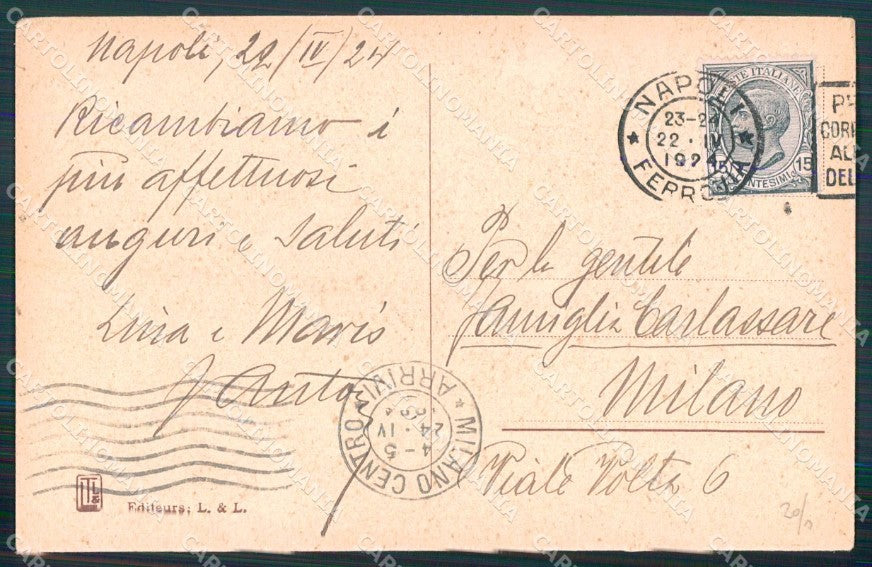 Napoli, 22/IV/24
Ricambiamo i
più affettuosi
auguri e saluti
Lina e Mavis
Per la gentile
famiglia Carlassare
Milano
Viale Volta 6
NAPOLI
23-24
22 · IV
1924
FERROVIA
POSTE ITALIANE
15 15
CENTESIMI
COR
AL
DEL
MILANO CENTRO
ARRIVI
4-5
24 · IV
Editeurs: L. & L.
L&L
20/
CARTOLINOMANIA